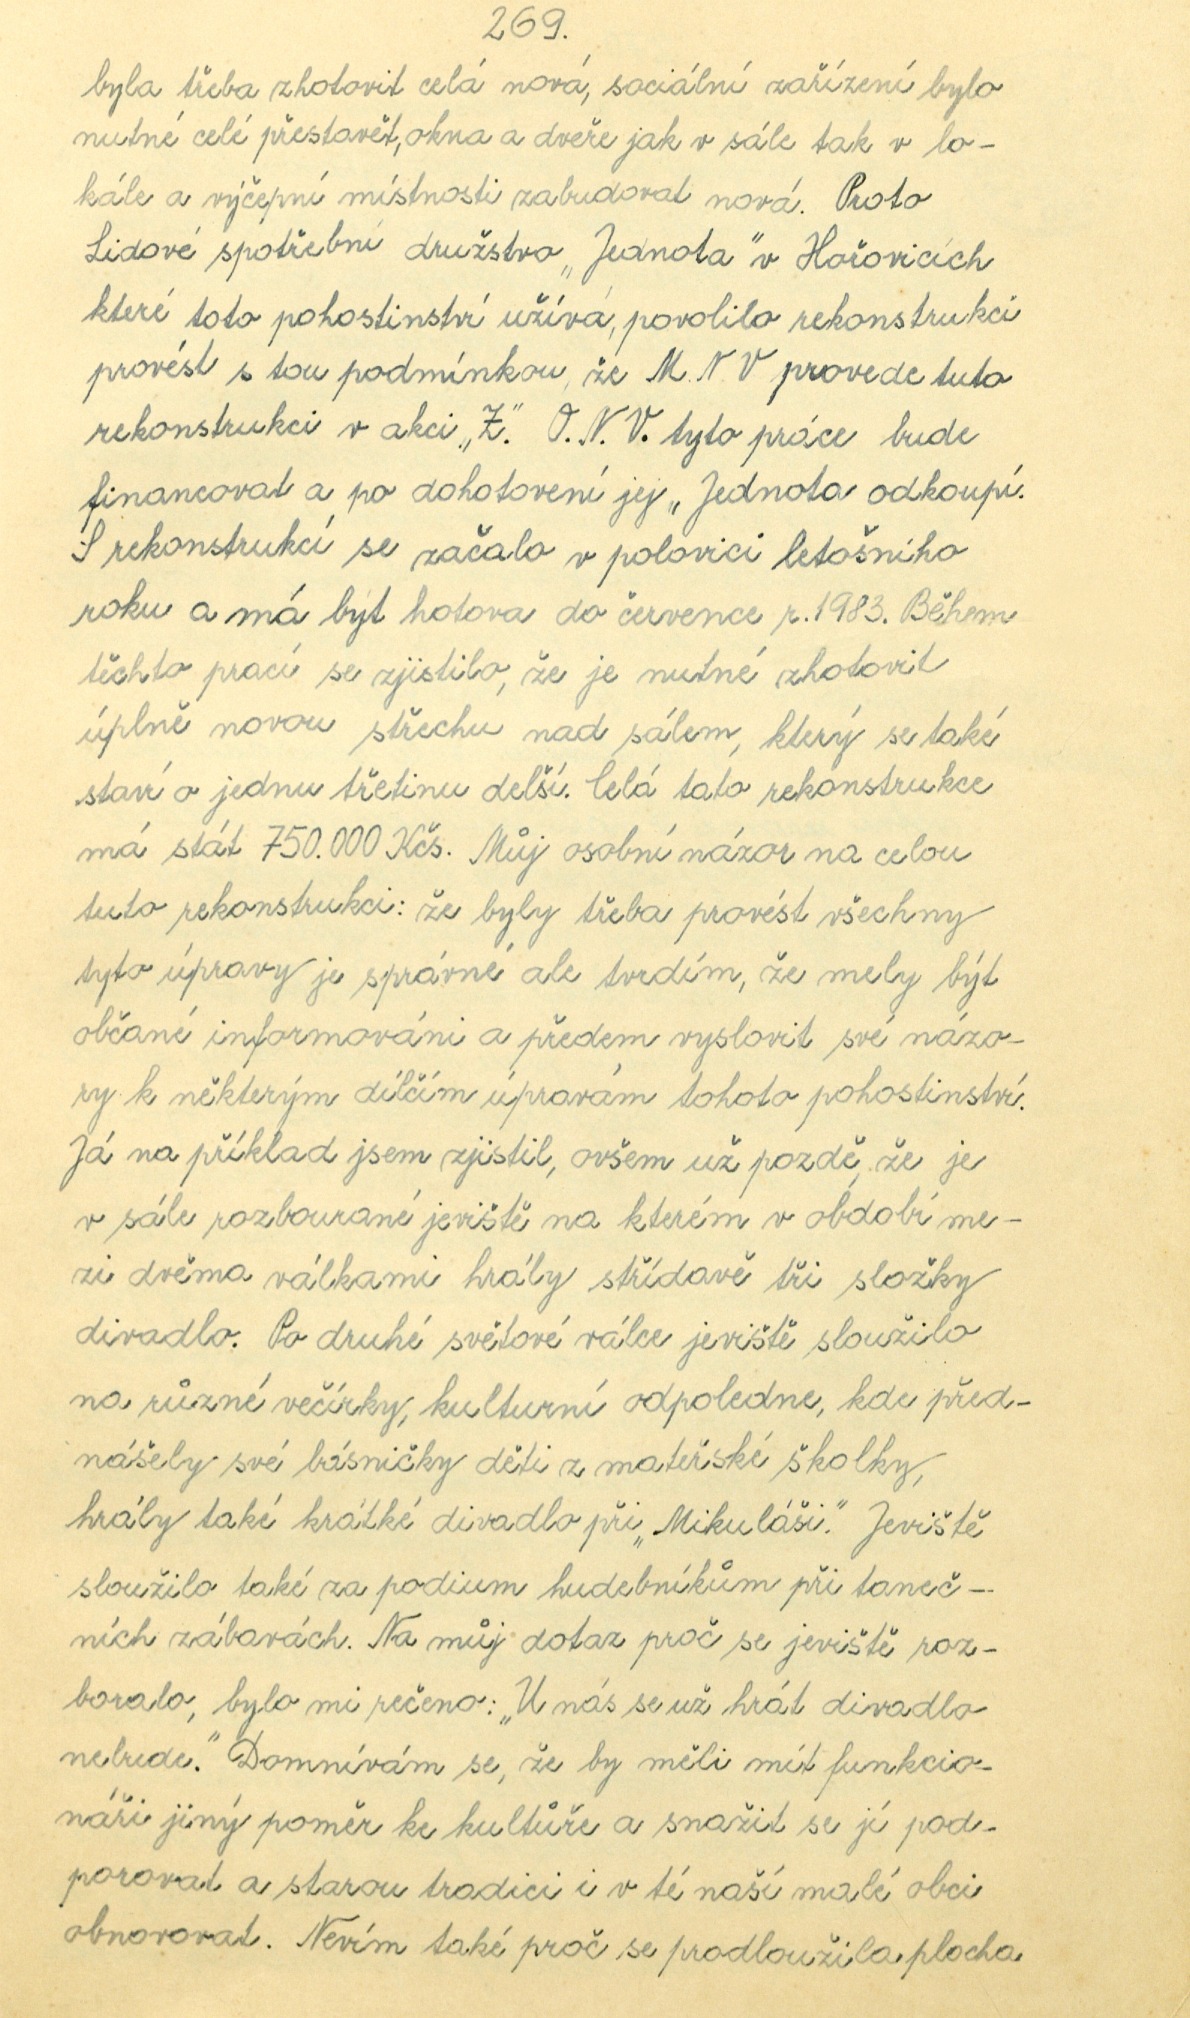 269.
byla třeba zhotovit celá nová, sociální zařízení bylo
nutné celé přestavět, okna a dveře jak v sále tak v lo-
kále a výčepní místnosti zabudovat nová. Proto
Lidové spotřební družstvo „Jednota" v Hořovicích
které toto pohostinství užívá, povolilo rekonstrukci
provést s tou podmínkou, že M.N.V provede tuto
rekonstrukci v akci „Z". O.N.V. tyto práce bude
financovat a po dohotovení jej „Jednota odkoupí.
S rekonstrukcí se začalo v polovici letošního
roku a má být hotova do července r. 1983. Během
těchto prací se zjistilo, že je nutné zhotovit
úplně novou střechu nad sálem, který se také
staví o jednu třetinu delší. Celá tato rekonstrukce
má stát 750.000 Kčs. Můj osobní názor na celou
tuto rekonstrukci: že byly třeba provést všechny
tyto úpravy je správné ale tvrdím, že mely být
občané informováni a předem vyslovit své názo-
ry k některým dílčím úpravám tohoto pohostinství.
Já na příklad jsem zjistil, ovšem už pozdě, že je
v sále rozbourané jeviště na kterém v období me-
zi dvěma válkami hrály střídavě tři složky
divadlo. Po druhé světové válce jeviště sloužilo
na různé večírky, kulturní odpoledne, kde před-
nášely své básničky děti z mateřské školky,
hrály také krátké divadlo při „Mikuláši." Jeviště
sloužilo také za podium hudebníkům při taneč-
ních zábavách. Na můj dotaz proč se jeviště roz-
boralo, bylo mi rečeno: „U nás se už hrát divadlo
nebude." Domnívám se, že by měli mít funkcio-
náři jiný poměr ke kultůře a snažit se jí pod-
porovat a starou tradici i v té naší malé obci
obnovovat. Nevím také proč se prodloužila plocha